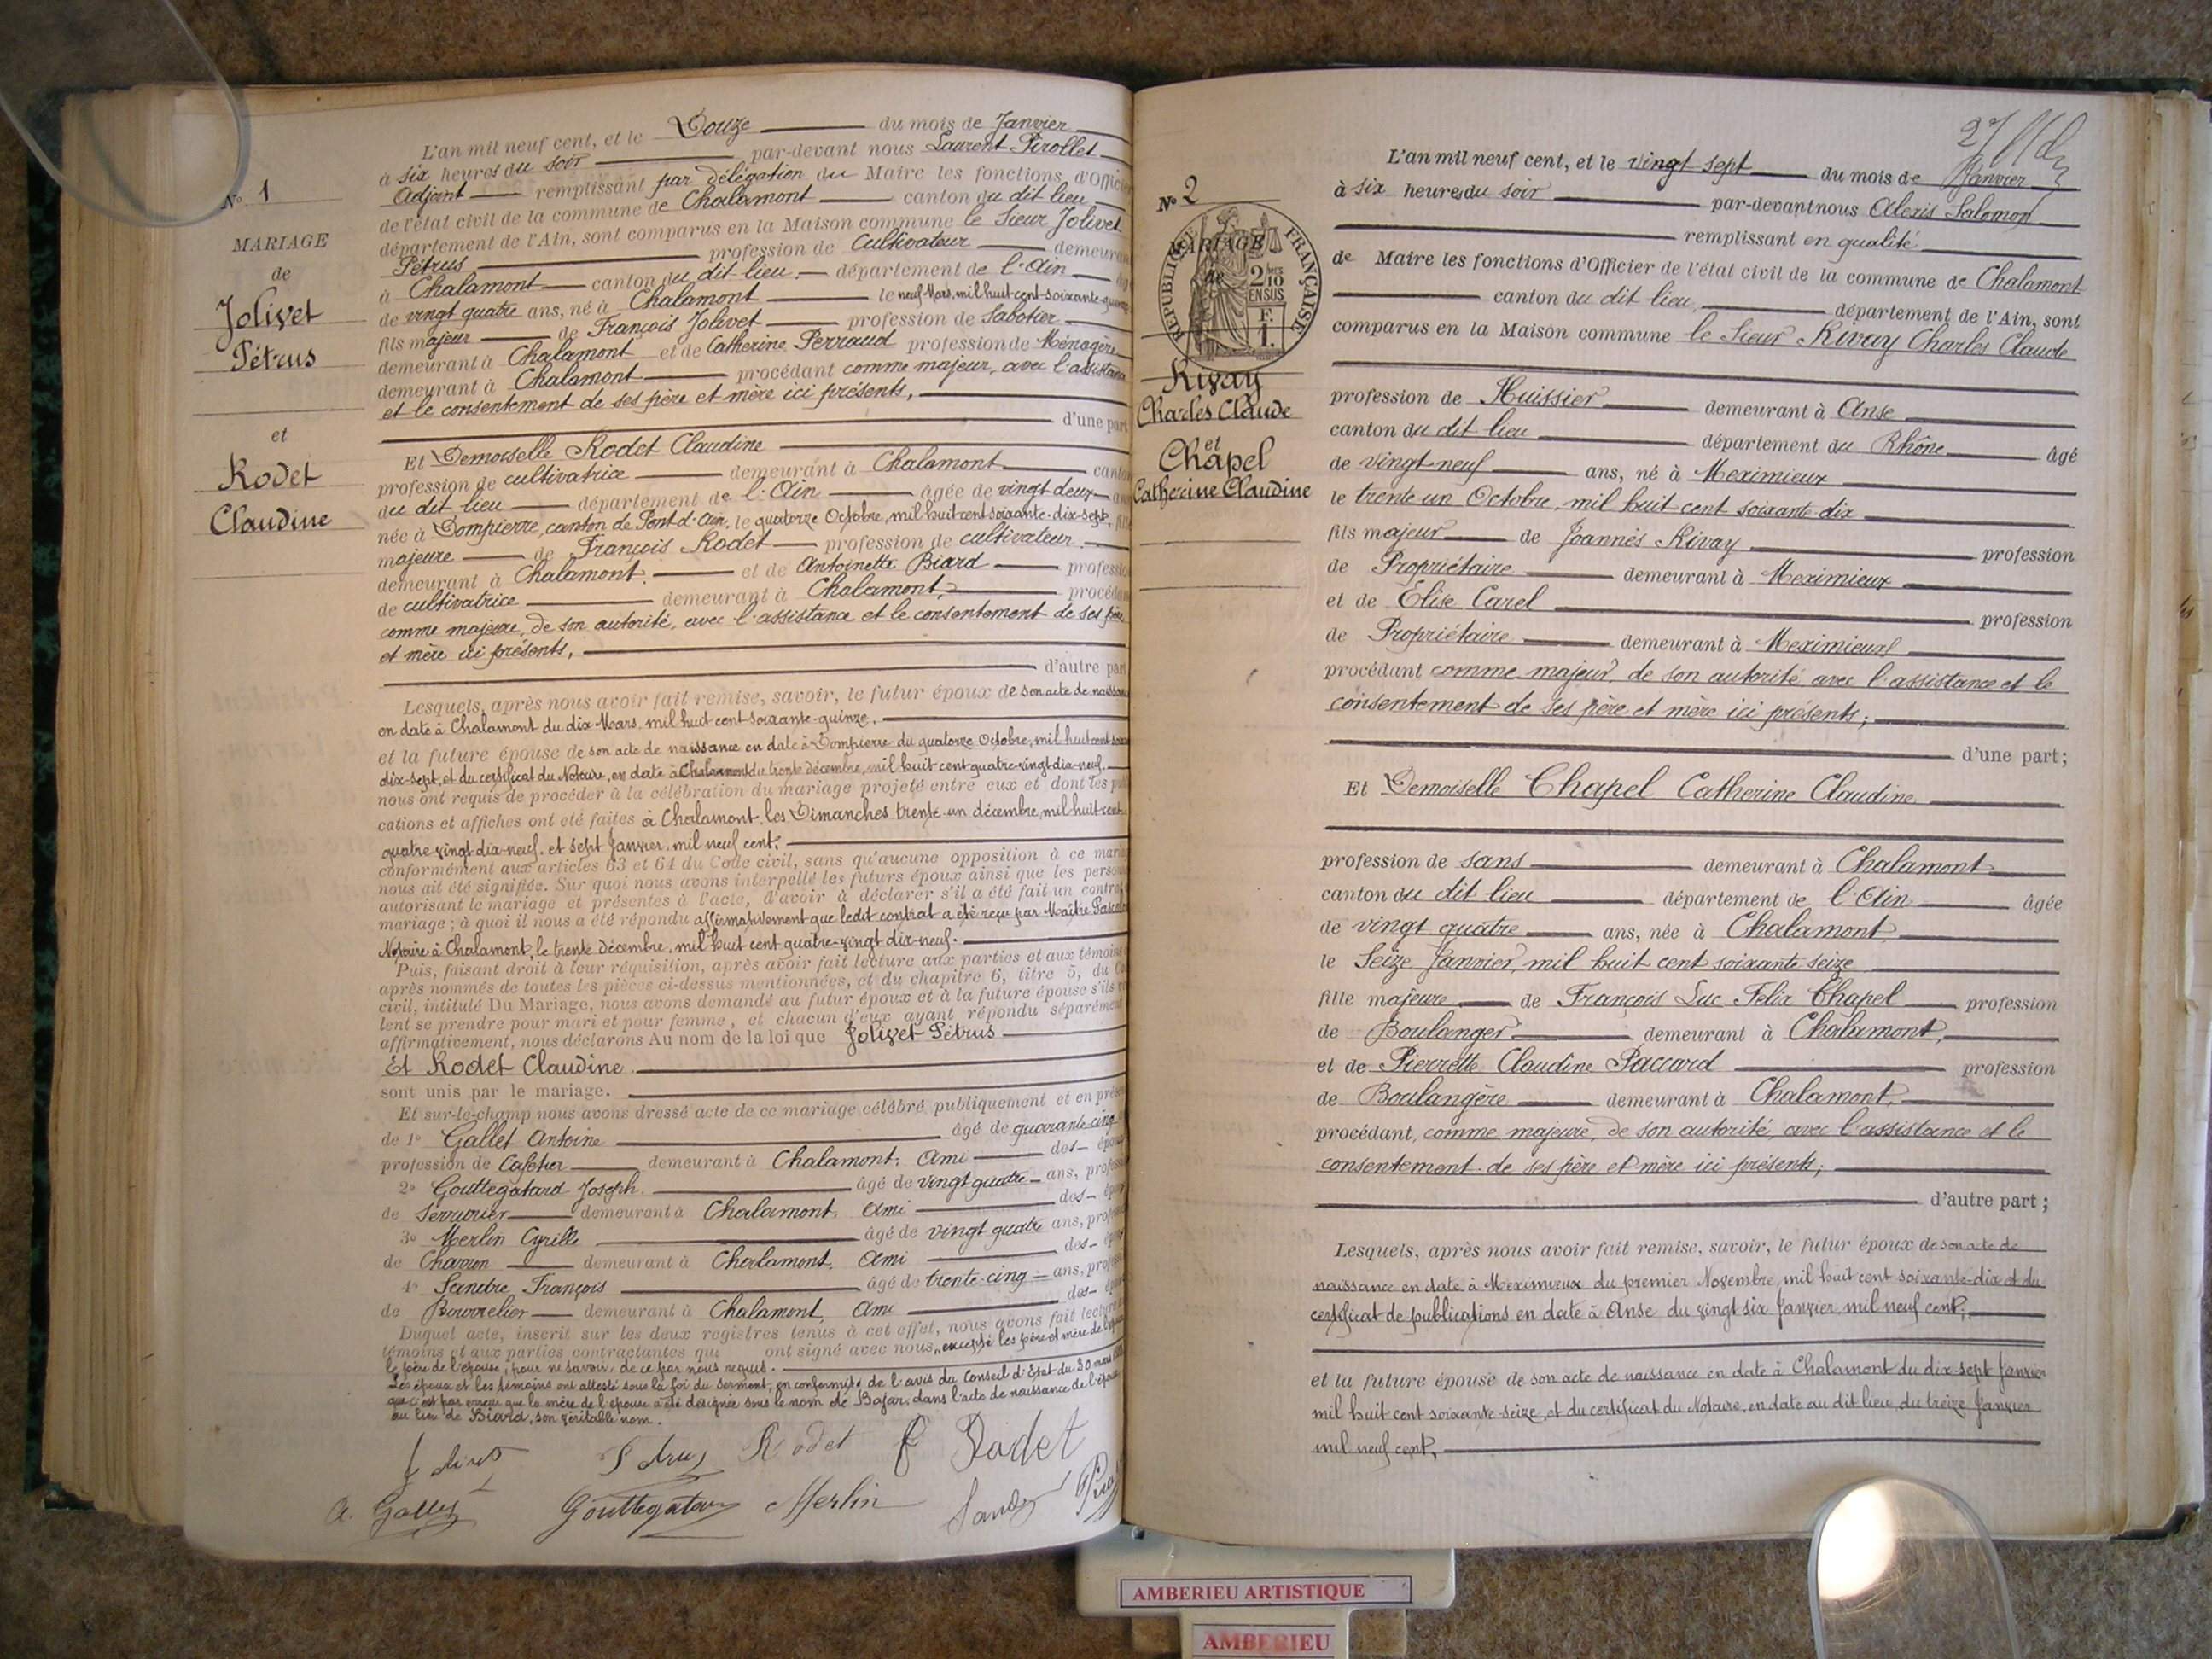 N° 1
MARIAGE
de
Jolivet
Pétrus
et
Rodet
Claudine
L'an mil neuf cent, et le Douze du mois de Janvier
à six heures du soir par-devant nous Laurent Pirollet
Adjoint remplissant par délégation du Maire les fonctions, d'Officier
de l'état civil de la commune de Chalamont canton du dit lieu
département de l'Ain, sont comparus en la Maison commune le Sieur Jolivet
Pétrus profession de Cultivateur demeurant
à Chalamont canton du dit lieu département de l'Ain
de vingt quatre ans, né à Chalamont le neuf Mars, mil huit cent soixante quinze
fils majeur de François Jolivet profession de Sabotier
demeurant à Chalamont et de Catherine Perraud profession de Ménagère
demeurant à Chalamont procédant comme majeur, avec l'assistance
et le consentement de ses père et mère ici présents,
d'une part
Et Demoiselle Rodet Claudine
profession de cultivatrice demeurant à Chalamont canton
du dit lieu département de l'Ain âgée de vingt deux ans
née à Dompierre, canton de Pont-d'Ain, le quatorze Octobre, mil huit cent soixante-dix-sept,
majeure de François Rodet profession de cultivateur
demeurant à Chalamont. et de Antoinette Biard profession
de cultivatrice demeurant à Chalamont, procédant
comme majeure, de son autorité, avec l'assistance et le consentement de ses père
et mère ici présents,
d'autre part
Lesquels, après nous avoir fait remise, savoir, le futur époux de son acte de naissance
en date à Chalamont du dix Mars, mil huit cent soixante-quinze,
et la future épouse de son acte de naissance en date à Dompierre du quatorze Octobre, mil huit cent soixante
dix-sept, et du certificat du Notaire, en date à Chalamont du trente décembre, mil huit cent quatre-vingt-dix-neuf.
nous ont requis de procéder à la célébration du mariage projeté entre eux et dont les publi
cations et affiches ont été faites à Chalamont les Dimanches trente-un décembre, mil huit cent
quatre vingt dix-neuf. et sept Janvier, mil neuf cent,
conformément aux articles 63 et 64 du Code civil, sans qu'aucune opposition à ce mariage
nous ait été signifiée. Sur quoi nous avons interpellé les futurs époux ainsi que les personnes
autorisant le mariage et présentes à l'acte, d'avoir à déclarer s'il a été fait un contrat
mariage ; à quoi il nous a été répondu affirmativement que ledit contrat a été reçu par Maître
Notaire à Chalamont, le trente décembre, mil huit cent quatre-vingt dix-neuf.
Puis, faisant droit à leur réquisition, après avoir fait lecture aux parties et aux témoins
après nommés de toutes les pièces ci-dessus mentionnées, et du chapitre 6, titre 5, du Code
civil, intitulé Du Mariage, nous avons demandé au futur époux et à la future épouse s'ils
lent se prendre pour mari et pour femme, et chacun d'eux ayant répondu séparément
affirmativement, nous déclarons Au nom de la loi que Jolivet Pétrus
Et Rodet Claudine
sont unis par le mariage.
Et sur-le-champ nous avons dressé acte de ce mariage célébré publiquement et en présence
de 1° Gallet Antoine âgé de quarante-cinq
profession de Cafetier demeurant à Chalamont. Ami des époux
2° Gouttegatard Joseph âgé de vingt quatre ans, profession
de Serrurier demeurant à Chalamont. Ami des époux
3° Merlin Cyrille âgé de vingt quatre ans, profession
de Charron demeurant à Chalamont. Ami des époux
4° Sandre François âgé de trente-cinq ans, profession
de Bourrelier demeurant à Chalamont, Ami des
Duquel acte, inscrit sur les deux registres tenus à cet effet, nous avons fait lecture
témoins et aux parties contractantes qui ont signé avec nous, excepté les père et mère de
le père de l'épouse, pour ne savoir, de ce par nous requis.
Les époux et les témoins ont attesté sous la foi du serment, en conformité de l'avis du Conseil d'Etat du 30 mars
que c'est par erreur que la mère de l'épouse a été désignée sous le nom de Bajar, dans l'acte de naissance de l'épouse
au lieu de Biard, son véritable nom.
Pétrus Rodet F Rodet
A. Gallet Gouttegatard Merlin
27
N° 2
MARIAGE
de
RÉPUBLIQUE FRANÇAISE
2/10
EN SUS
F.
1.
Rivay
Charles Claude
et
Chapel
Catherine Claudine
L'an mil neuf cent, et le vingt sept du mois de Janvier
à six heures du soir par-devant nous Alexis Salomon
remplissant en qualité
de Maire les fonctions d'Officier de l'état civil de la commune de Chalamont
canton du dit lieu, département de l'Ain, sont
comparus en la Maison commune le Sieur Rivay Charles Claude
profession de Huissier demeurant à Anse
canton du dit lieu département du Rhône âgé
de vingt-neuf ans, né à Meximieux
le trente un Octobre, mil huit cent soixante dix
fils majeur de Joannès Rivay profession
de Propriétaire demeurant à Meximieux
et de Elise Carel profession
de Propriétaire demeurant à Meximieux
procédant comme majeur, de son autorité avec l'assistance et le
consentement de ses père et mère ici présents ;
d'une part ;
Et Demoiselle Chapel Catherine Claudine
profession de sans demeurant à Chalamont
canton du dit lieu département de l'Ain âgée
de vingt quatre ans, née à Chalamont
le Seize Janvier, mil huit cent soixante-seize
fille majeure de François Luc Felix Chapel profession
de Boulanger demeurant à Chalamont,
et de Pierrette Claudine Paccard profession
de Boulangère demeurant à Chalamont,
procédant, comme majeure, de son autorité, avec l'assistance et le
consentement de ses père et mère ici présents ;
d'autre part ;
Lesquels, après nous avoir fait remise, savoir, le futur époux de son acte de
naissance en date à Meximieux du premier Novembre, mil huit cent soixante-dix et du
certificat de publications en date à Anse du vingt six Janvier mil neuf cent ;
et la future épouse de son acte de naissance en date à Chalamont du dix-sept Janvier
mil huit cent soixante-seize, et du certificat du Notaire, en date au dit lieu, du treize Janvier
mil neuf cent,
AMBERIEU ARTISTIQUE
AMBERIEU